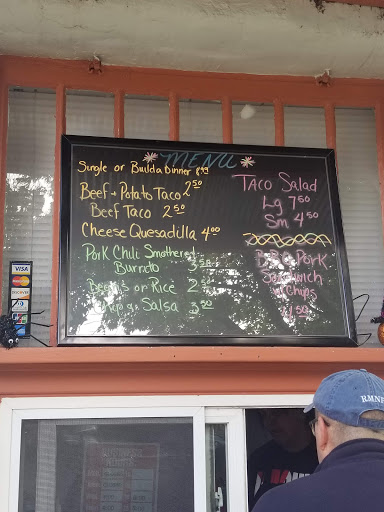 MENU
Single or Build a Dinner
Beef + Potato Taco 2.50
Beef Taco 2.50
Cheese Quesadilla 4.00
Pork Chili Smothered
Burrito
or Rice
Salsa
Taco Salad
Lg 7.50
Sm 4.50
BBQ Pork
Sandwich
Chips
VISA
DISCOVER
RMNP